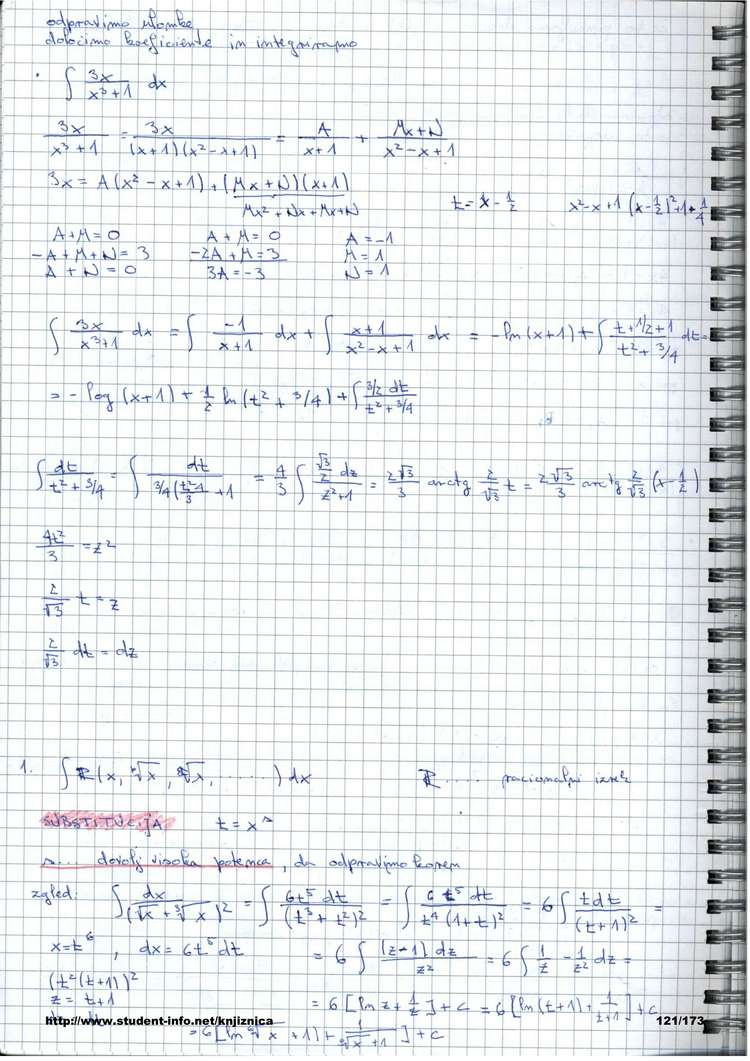 odpravimo ulomke
določimo koeficiente in integriramo
• ∫ 3x/(x³+1) dx
3x/(x³+1) = 3x/((x+1)(x²-x+1)) = A/(x+1) + (Mx+N)/(x²-x+1)
3x = A(x²-x+1) + (Mx+N)(x+1)
Mx²+Nx+Mx+N
t = x - 1/2    x²-x+1 (x-1/2)²+1-1/4
A+M=0    A+M=0    A=-1
-A+M+N=3    -2A+M=3    M=1
A+N=0    3A=-3    N=1
∫ 3x/(x³+1) dx = ∫ -1/(x+1) dx + ∫ (x+1)/(x²-x+1) dx = -ln(x+1) + ∫ (t+1/2+1)/(t²+3/4) dt =
= -log(x+1) + 1/2 ln(t²+3/4) + ∫ (3/2 dt)/(t²+3/4)
∫ dt/(t²+3/4) = ∫ dt/(3/4(t²4/3+1 = 4/3 ∫ (√3/2 dz)/(z²+1) = 2√3/3 arctg 2/√3 t = 2√3/3 arctg 2/√3 (x-1/2)
4t²/3 = z²
2/√3 t = z
2/√3 dt = dz
1. ∫ R(x, ⁿ√x, ᵏ√x, ......) dx    R .... racionalni izraz
SUBSTITUCIJA    t = xˢ
s... dovolj visoka potenca, da odpravimo koren
zgled: ∫ dx/(√x+³√x)² = ∫ 6t⁵dt/(t³+t²)² = ∫ 6t⁵dt/(t⁴(1+t)²) = 6 ∫ tdt/(t+1)² =
x=t⁶, dx=6t⁵dt    = 6 ∫ (z-1)dz/z² = 6 ∫ 1/z - 1/z² dz =
(t²(t+1))²
z = t+1    = 6[ln z + 1/z] + c = 6[ln(t+1) + 1/(t+1)] + c
http://www.student-info.net/knjiznica    121/173
= 6[ln ⁶√x+1) + 1/(⁶√x+1)] + c